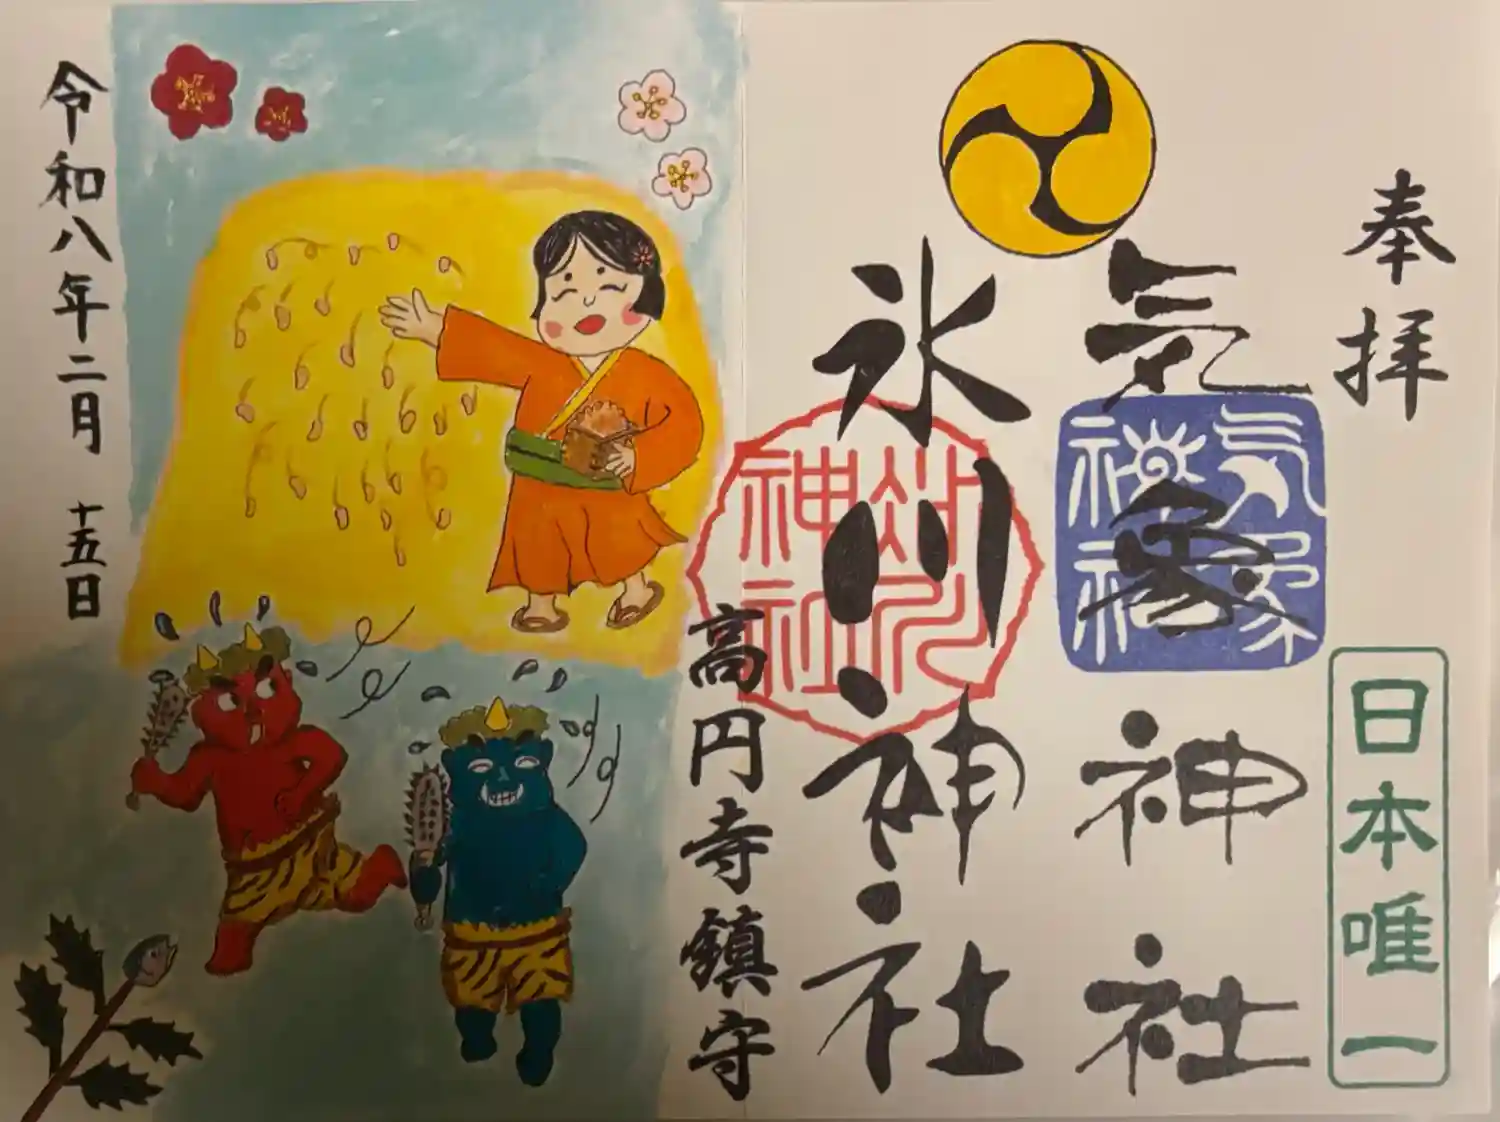 奉拝
日本唯一
気象神社
気象神社
氷川神社
氷川神社
高円寺鎮守
令和八年二月 十五日